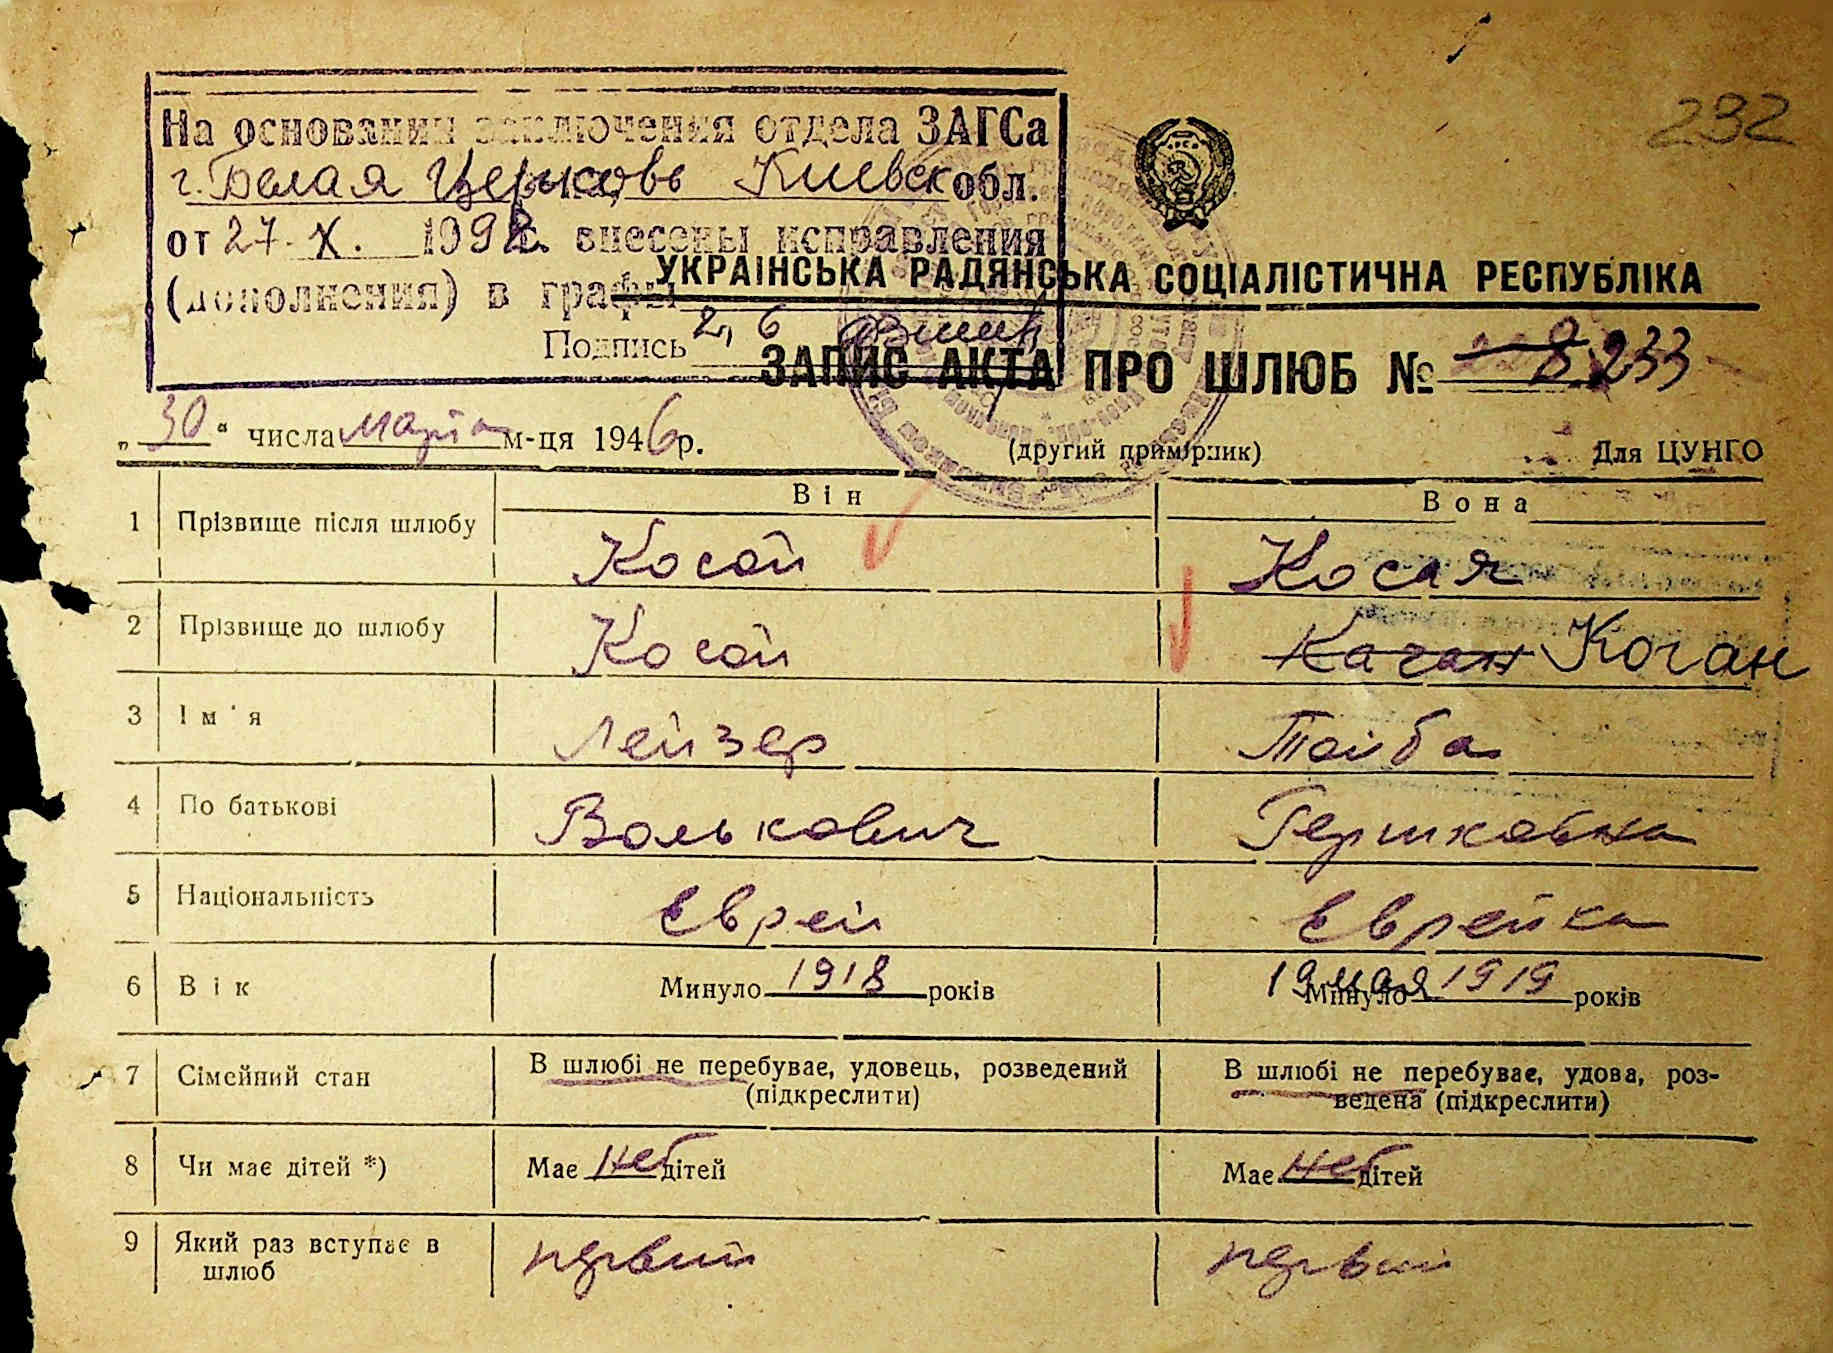 232
На основании заключения отдела ЗАГСа
г. Белая Церковь Киевск обл.
от 27. X. 1992г. внесены исправления
(дополнения) в графы 2, 6
Подпись
УКРАІНСЬКА РАДЯНСЬКА СОЦІАЛІСТИЧНА РЕСПУБЛІКА
ЗАПИС АКТА ПРО ШЛЮБ № 233
„30“ числа марта м-ця 1946 р.
(другий примірник) Для ЦУНГО
Він Вона
1 Прізвище після шлюбу Косой Косая
2 Прізвище до шлюбу Косой Качан Коган
3 Ім'я Лейзер Тойба
4 По батькові Волькович Гершковна
5 Національність Єврей Єврейка
6 Вік Минуло 1918 років 19 мая Минуло 1919 років
7 Сімейний стан В шлюбі не перебуває, удовець, розведений В шлюбі не перебуває, удова, роз-
(підкреслити) ведена (підкреслити)
8 Чи має дітей *) Має нет дітей Має нет дітей
9 Який раз вступає в первий первий
шлюб